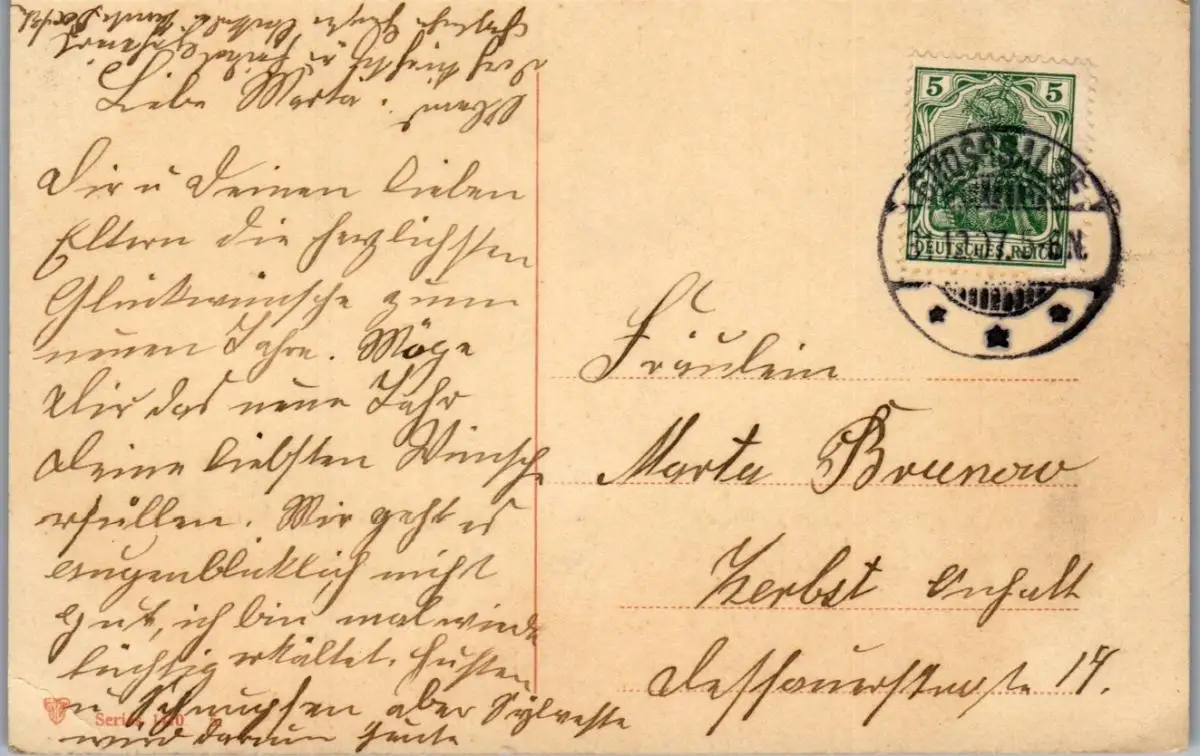 Liebe Marta!
Dir u Deinen lieben
Eltern die herzlichsten
Glückwünsche zum
neuen Jahre. Möge
Dir das neue Jahr
Deine liebsten Wünsche
erfüllen. Mir geht es
augenblicklich nicht
gut, ich bin mal wieder
tüchtig erkältet. Husten
u Schnupfen aber Sylvester
wird darum heute
5 5
GROSSSALZE
DEUTSCHES REICH
Fräulein
Marta Brunow
Zerbst Anhalt
Dessauerstraße 14.
Series 1410